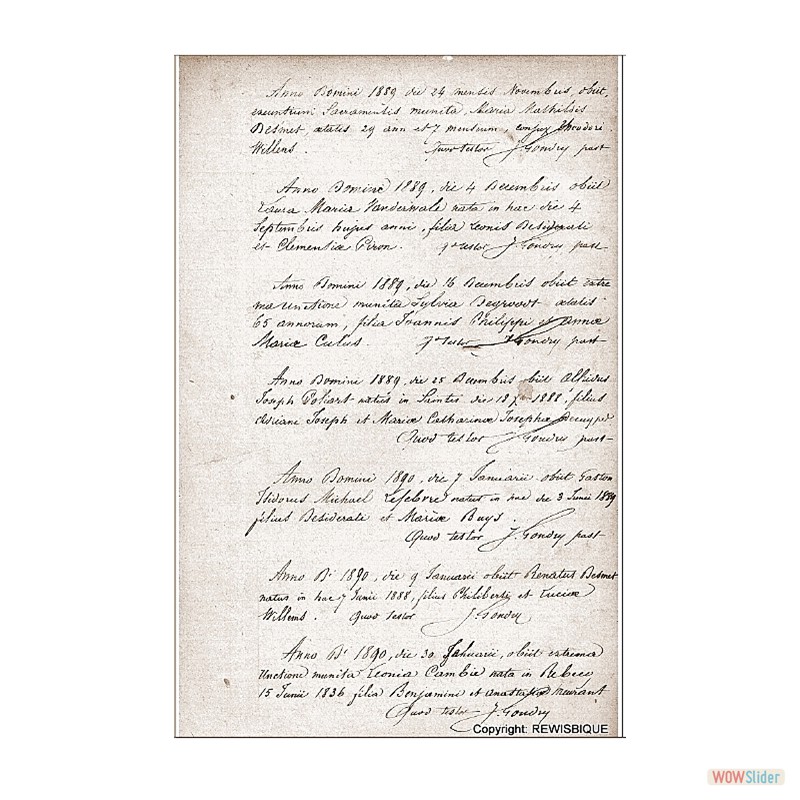 Anno Domini 1889 die 24 mensis Novembris, obiit,
Sacramentis munita, Maria Mathildis
Desmet, ætatis 29 ann et 7 mensium, conjux Theodori
Willems. Quod testor J. Gondry past
Anno Domini 1889, die 4 Decembris obiit
Laura Maria Vanderwale nata in hac die 4
Septembris hujus anni, filia Leonis Desiderati
et Clementiæ Piron. qd testor J. Gondry past
Anno Domini 1889, die 16 Decembris obiit extre
ma unctione munita Sylvia Degroodt ætatis
65 annorum, filia Joannis Philippi et Annæ
Mariæ Culus. qd testor J. Gondry past
Anno Domini 1889, die 28 Decembris obiit
Joseph natus in die 1888, filius
Adriani Joseph et Mariæ Catharinæ Josephæ
Quod testor J. Gondry past
Anno Domini 1890, die 7 Januarii obiit Gaston
Isidorus Michael Lefebvre natus in hac die 3 Junii 1889
filius Desiderati et Mariæ Buys.
Quod testor J. Gondry past
Anno Di 1890, die 9 Januarii obiit Renatus Desmet
natus in hac 7 Junii 1888, filius Philiberti et Luciæ
Willems. Quod testor J. Gondry
Anno Di 1890, die 30 Januarii, obiit extrema
Unctione munita Leonia Cambie nata in Rebecq
15 Junii 1836 filia Benjamini et
Quod testor J. Gondry
Copyright: REWISBIQUE
WOWSlider